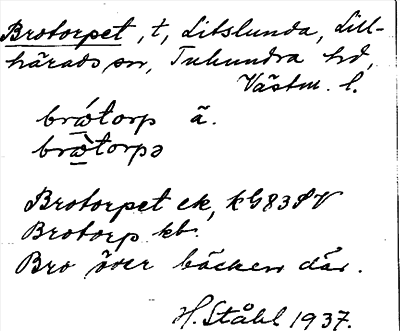 Brotorpet, t, Litslunda, Lill-
härads sn, Tuhundra hd,
Västm. l.
brǽtorp ä.
bræ̀torpə
Brotorpet ek, kG83SV
Brotorp kb.
Bro över bäcken där.
H. Ståhl 1937.